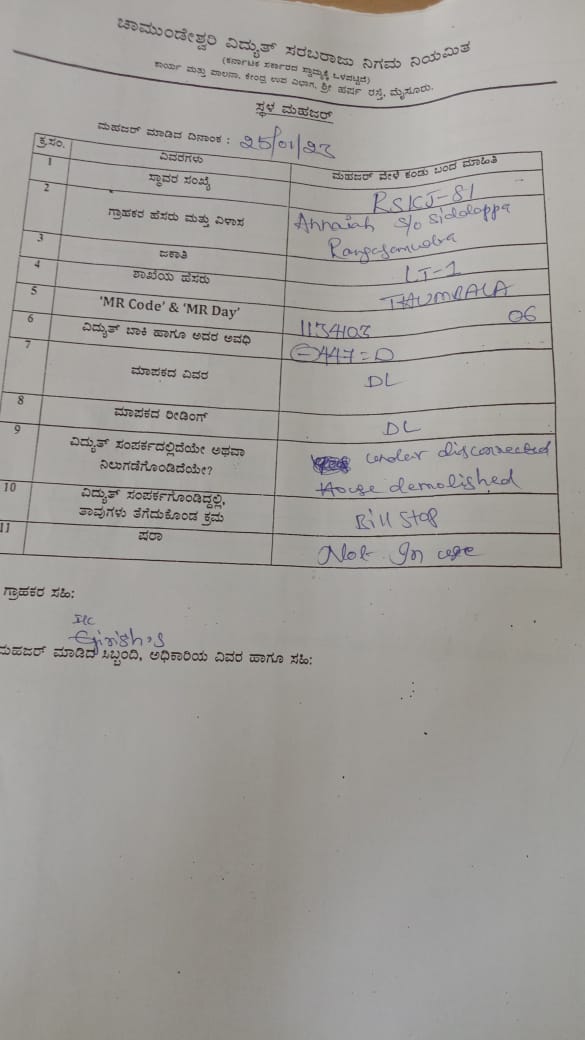 ಚಾಮುಂಡೇಶ್ವರಿ ವಿದ್ಯುತ್ ಸರಬರಾಜು ನಿಗಮ ನಿಯಮಿತ
(ಕರ್ನಾಟಕ ಸರ್ಕಾರದ ಸ್ವಾಮ್ಯಕ್ಕೆ ಒಳಪಟ್ಟಿದೆ)
ಕಾರ್ಯ ಮತ್ತು ಪಾಲನಾ, ಕೇಂದ್ರ ಉಪ ವಿಭಾಗ, ಶ್ರೀ ಹರ್ಷ ರಸ್ತೆ, ಮೈಸೂರು.
ಸ್ಥಳ ಮಹಜರ್
ಮಹಜರ್ ಮಾಡಿದ ದಿನಾಂಕ : 25/01/23
ಕ್ರ.ಸಂ. ವಿವರಗಳು ಮಹಜರ್ ವೇಳೆ ಕಂಡು ಬಂದ ಮಾಹಿತಿ
1 ಸ್ಥಾವರ ಸಂಖ್ಯೆ RSKJ-81
2 ಗ್ರಾಹಕರ ಹೆಸರು ಮತ್ತು ವಿಳಾಸ Annaiah S/o Siddappa
3 ಜಕಾತಿ LT-1
4 ಶಾಖೆಯ ಹೆಸರು
5 'MR Code' & 'MR Day' 1134103 06
6 ವಿದ್ಯುತ್ ಬಾಕಿ ಹಾಗೂ ಅದರ ಅವಧಿ -447=0
7 ಮಾಪಕದ ವಿವರ DL
8 ಮಾಪಕದ ರೀಡಿಂಗ್ DL
9 ವಿದ್ಯುತ್ ಸಂಪರ್ಕದಲ್ಲಿದೆಯೇ ಅಥವಾ under disconnected
ನಿಲುಗಡೆಗೊಂಡಿದೆಯೇ? House demolished
10 ವಿದ್ಯುತ್ ಸಂಪರ್ಕಗೊಂಡಿದ್ದಲ್ಲಿ,
ತಾವುಗಳು ತೆಗೆದುಕೊಂಡ ಕ್ರಮ Bill Stop
11 ಷರಾ Not In use
ಗ್ರಾಹಕರ ಸಹಿ:
Girish.S
ಮಹಜರ್ ಮಾಡಿದ ಸಿಬ್ಬಂದಿ, ಅಧಿಕಾರಿಯ ವಿವರ ಹಾಗೂ ಸಹಿ: